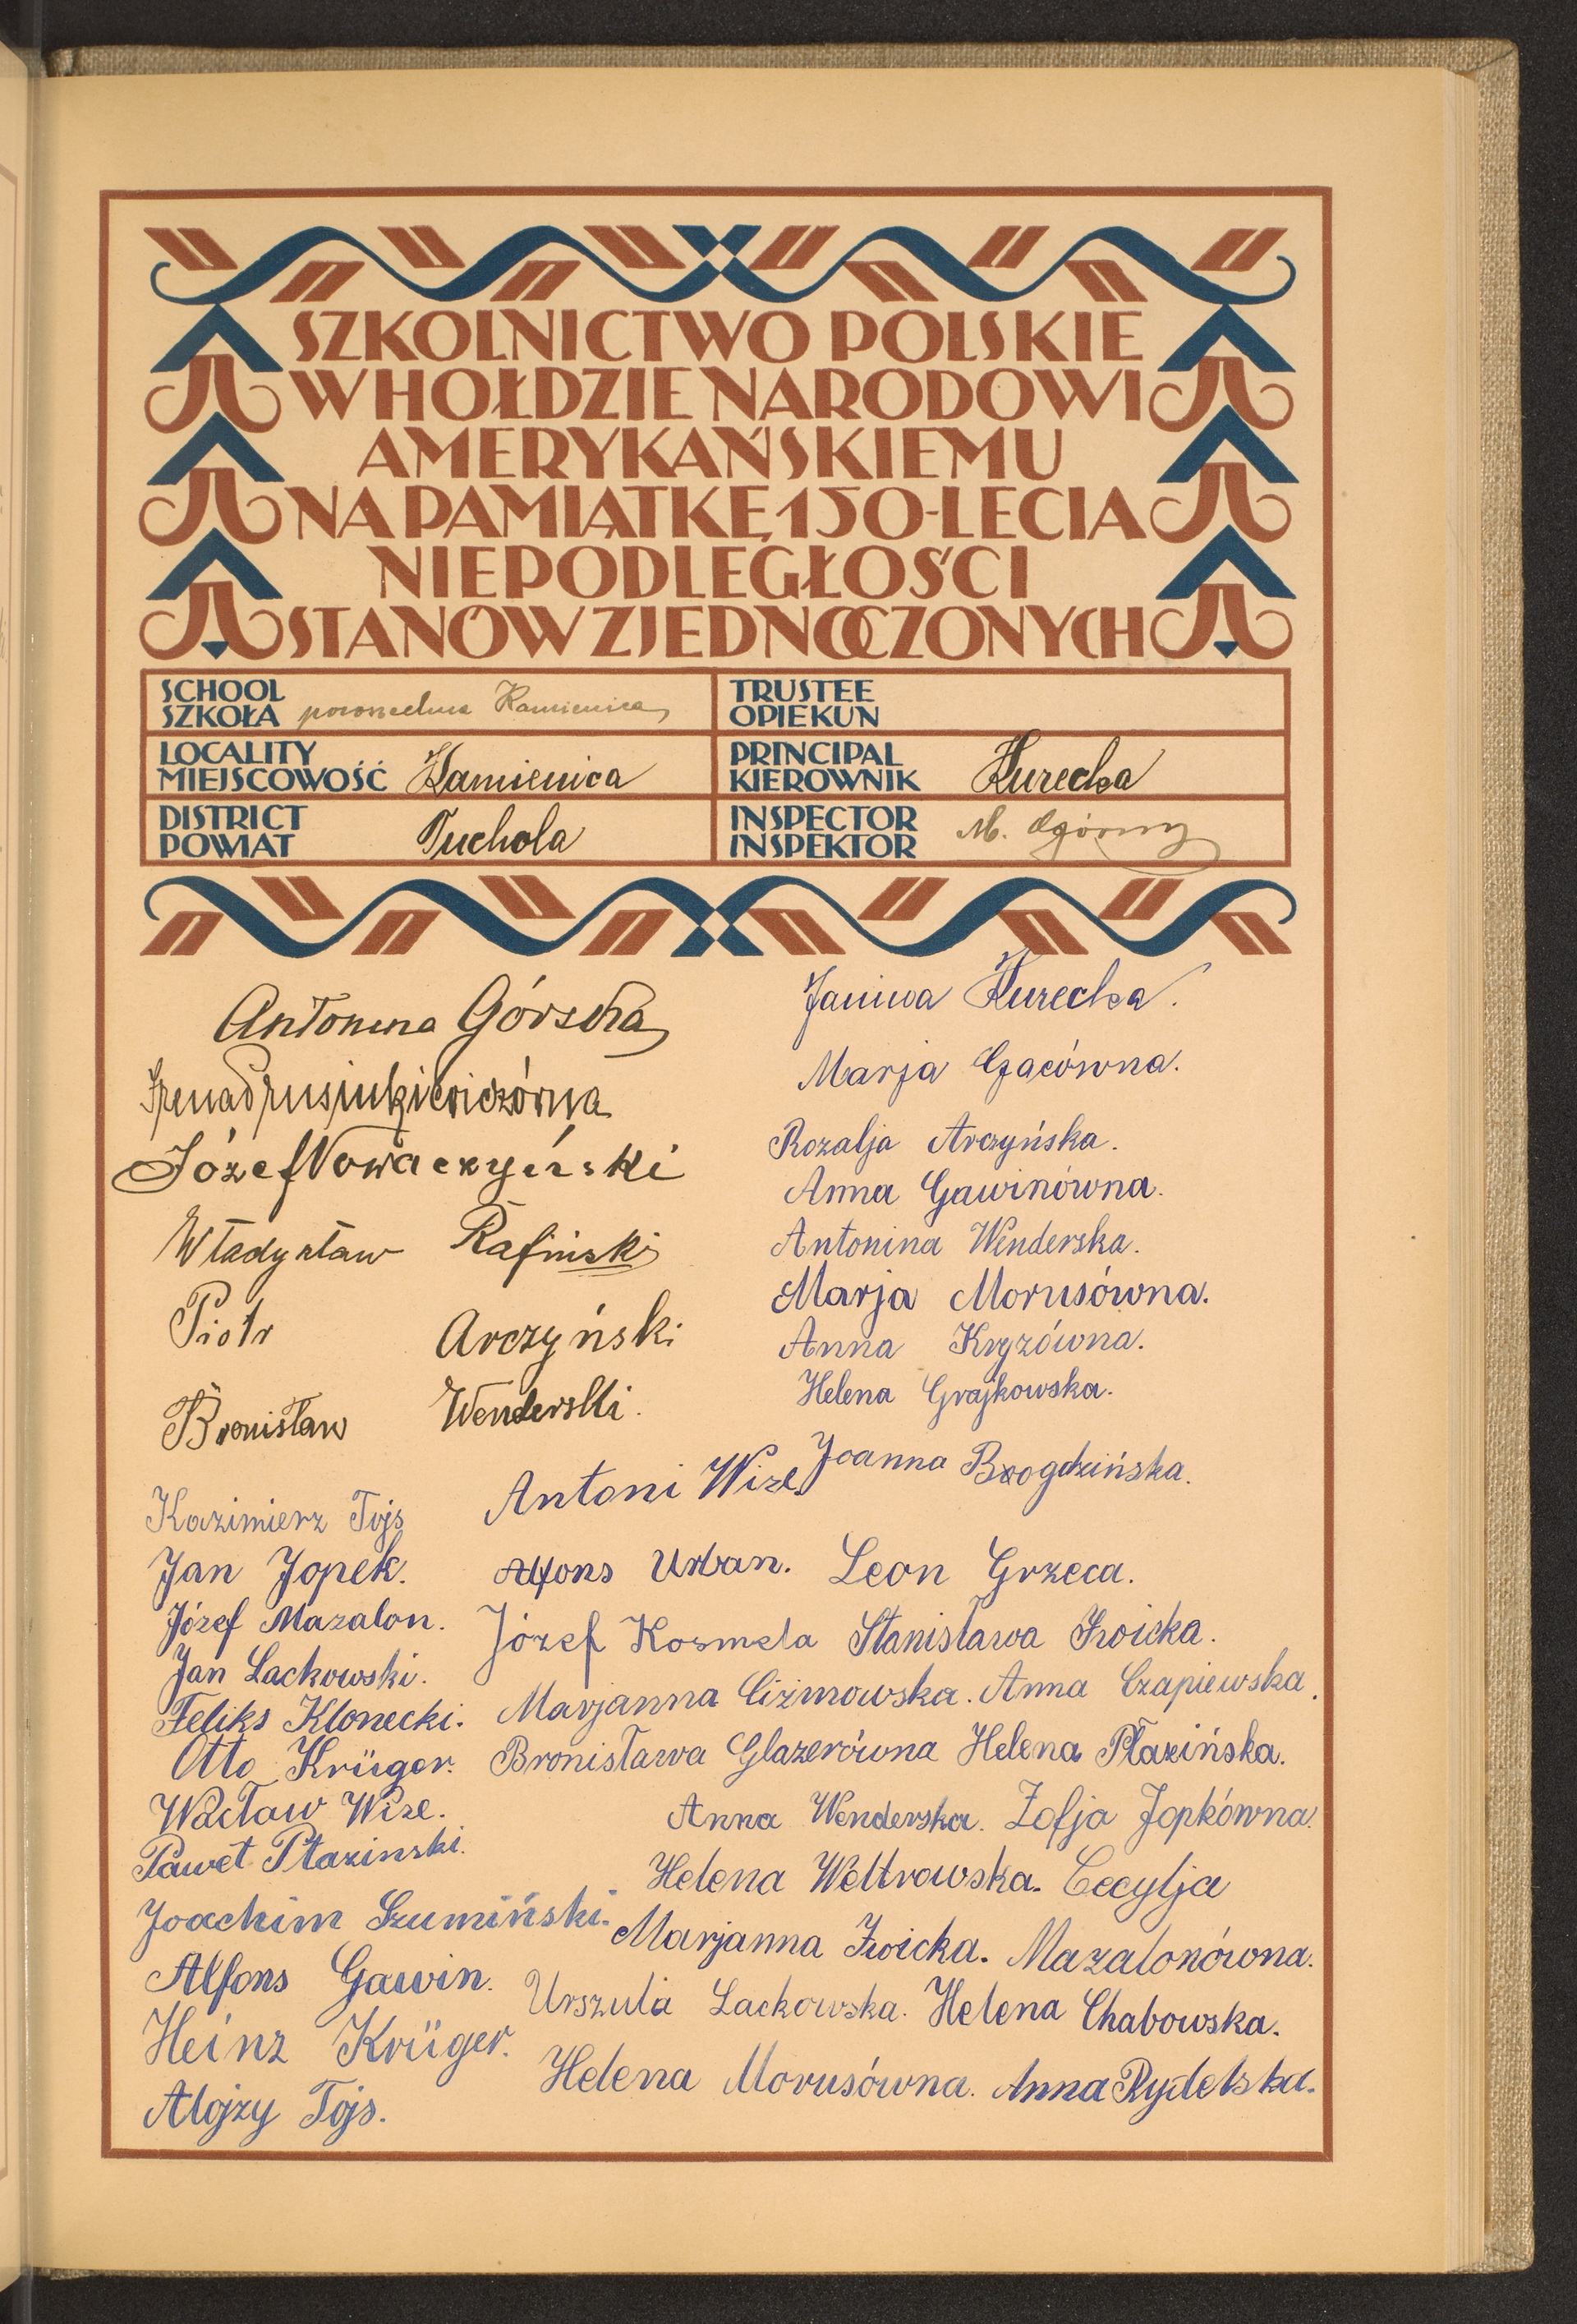 SZKOLNICTWO POLSKIE
W HOŁDZIE NARODOWI
AMERYKAŃSKIEMU
NA PAMIĄTKĘ 150-LECIA
NIEPODLEGŁOŚCI
STANÓW ZJEDNOCZONYCH
SCHOOL
SZKOŁA powszechna Kamienica
TRUSTEE
OPIEKUN
LOCALITY
MIEJSCOWOŚĆ Kamienica
PRINCIPAL
KIEROWNIK Kurecka
DISTRICT
POWIAT Tuchola
INSPECTOR
INSPEKTOR M. Ogórny
Antonina Górska
Irena
Józef Nowaczyński
Władysław Rafiński
Piotr Arczyński
Bronisław Wenderski.
Janina Kurecka.
Marja Gacówna.
Rozalja Arczyńska.
Anna Gawinówna.
Antonina Wenderska.
Marja Morusówna.
Anna Kryzówna.
Helena Grajkowska.
Joanna Brogdzińska.
Kazimierz Tojs
Jan Jopek.
Józef Mazalon.
Jan Lackowski.
Feliks Klonecki.
Otto Krüger.
Wacław Wize.
Paweł Płazinski.
Joachim Szumiński.
Alfons Gawin.
Heinz Krüger.
Alojzy Tojs.
Antoni Wize.
Alfons Urban. Leon Grzeca.
Józef Kosmela Stanisława Żwicka.
Marjanna Ciżmowska. Anna Czapiewska.
Bronisława Glazerówna Helena Płazińska.
Anna Wenderska. Zofja Jopkówna.
Helena Weltrowska. Cecylja
Marjanna Żwicka. Mazalonówna.
Urszula Lackowska. Helena Chabowska.
Helena Morusówna. Anna Rydelska.